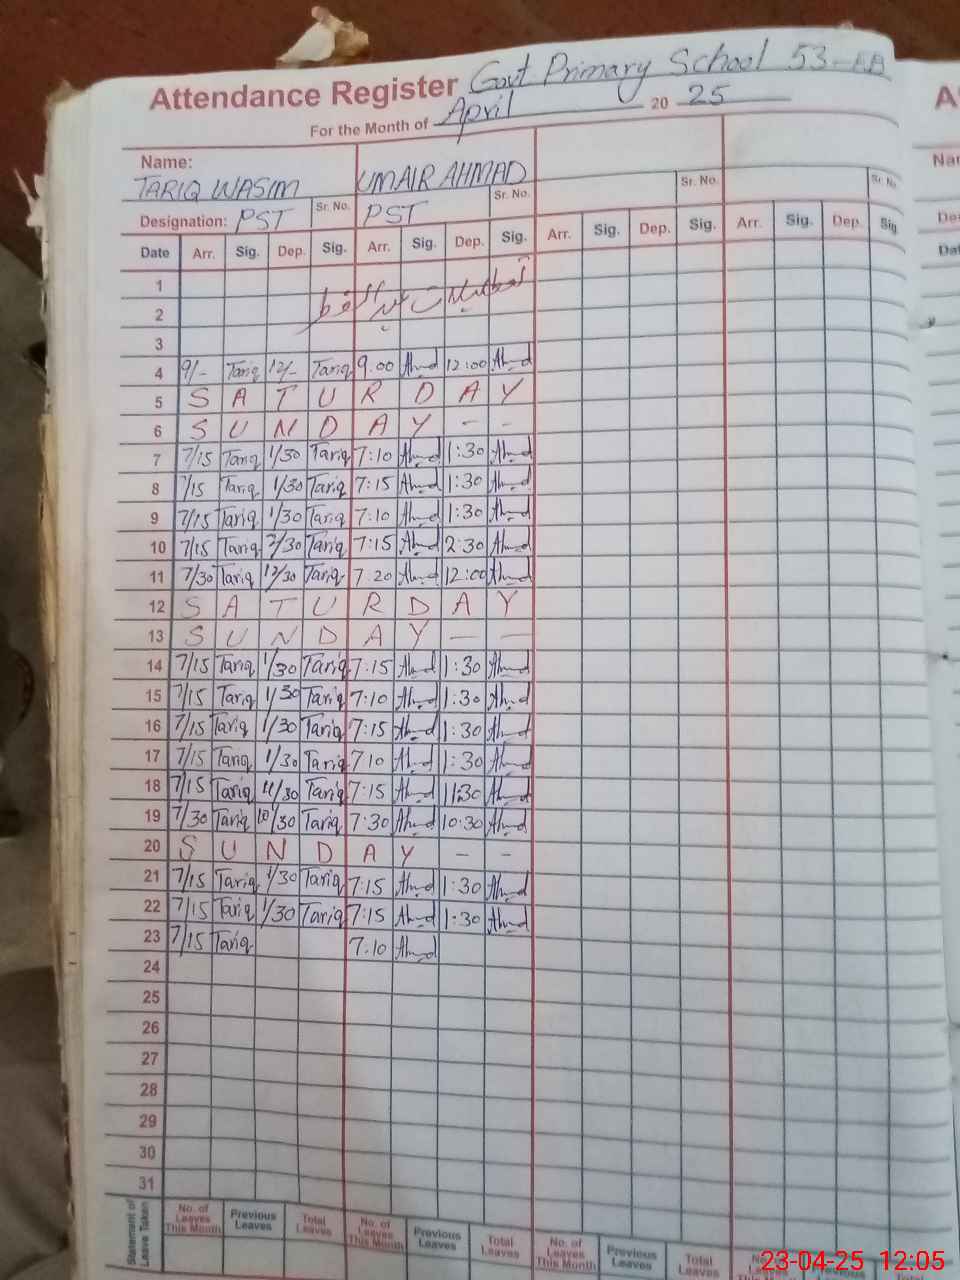 Attendance Register Govt Primary School 53-EB
For the Month of April 20 25
Name:
TARIQ WASIM UMAIR AHMAD
Sr. No. Sr. No. Sr. No. Sr. No.
Designation: PST PST
Date Arr. Sig. Dep. Sig. Arr. Sig. Dep. Sig. Arr. Sig. Dep. Sig. Arr. Sig. Dep. Sig.
1
2 تعطیلات عید الفطر
3
4 9/- Tariq 12/- Tariq 9.00 Ahmd 12:00 Ahmd
5 S A T U R D A Y
6 S U N D A Y - -
7 7/15 Tariq 1/30 Tariq 7:10 Ahmd 1:30 Ahmd
8 7/15 Tariq 1/30 Tariq 7:15 Ahmd 1:30 Ahmd
9 7/15 Tariq 1/30 Tariq 7:10 Ahmd 1:30 Ahmd
10 7/15 Tariq 2/30 Tariq 7:15 Ahmd 2:30 Ahmd
11 7/30 Tariq 12/30 Tariq 7:20 Ahmd 12:00 Ahmd
12 S A T U R D A Y
13 S U N D A Y - -
14 7/15 Tariq 1/30 Tariq 7:15 Ahmd 1:30 Ahmd
15 7/15 Tariq 1/30 Tariq 7:10 Ahmd 1:30 Ahmd
16 7/15 Tariq 1/30 Tariq 7:15 Ahmd 1:30 Ahmd
17 7/15 Tariq 1/30 Tariq 7 10 Ahmd 1:30 Ahmd
18 7/15 Tariq 11/30 Tariq 7:15 Ahmd 11:30 Ahmd
19 7/30 Tariq 10/30 Tariq 7:30 Ahmd 10:30 Ahmd
20 S U N D A Y - -
21 7/15 Tariq 1/30 Tariq 7:15 Ahmd 1:30 Ahmd
22 7/15 Tariq 1/30 Tariq 7:15 Ahmd 1:30 Ahmd
23 7/15 Tariq 7.10 Ahmd
24
25
26
27
28
29
30
31
Statement of Leave Taken
No. of Leaves This Month Previous Leaves Total Leaves No. of Leaves This Month Previous Leaves Total Leaves No. of Leaves This Month Previous Leaves Total Leaves
23-04-25 12:05